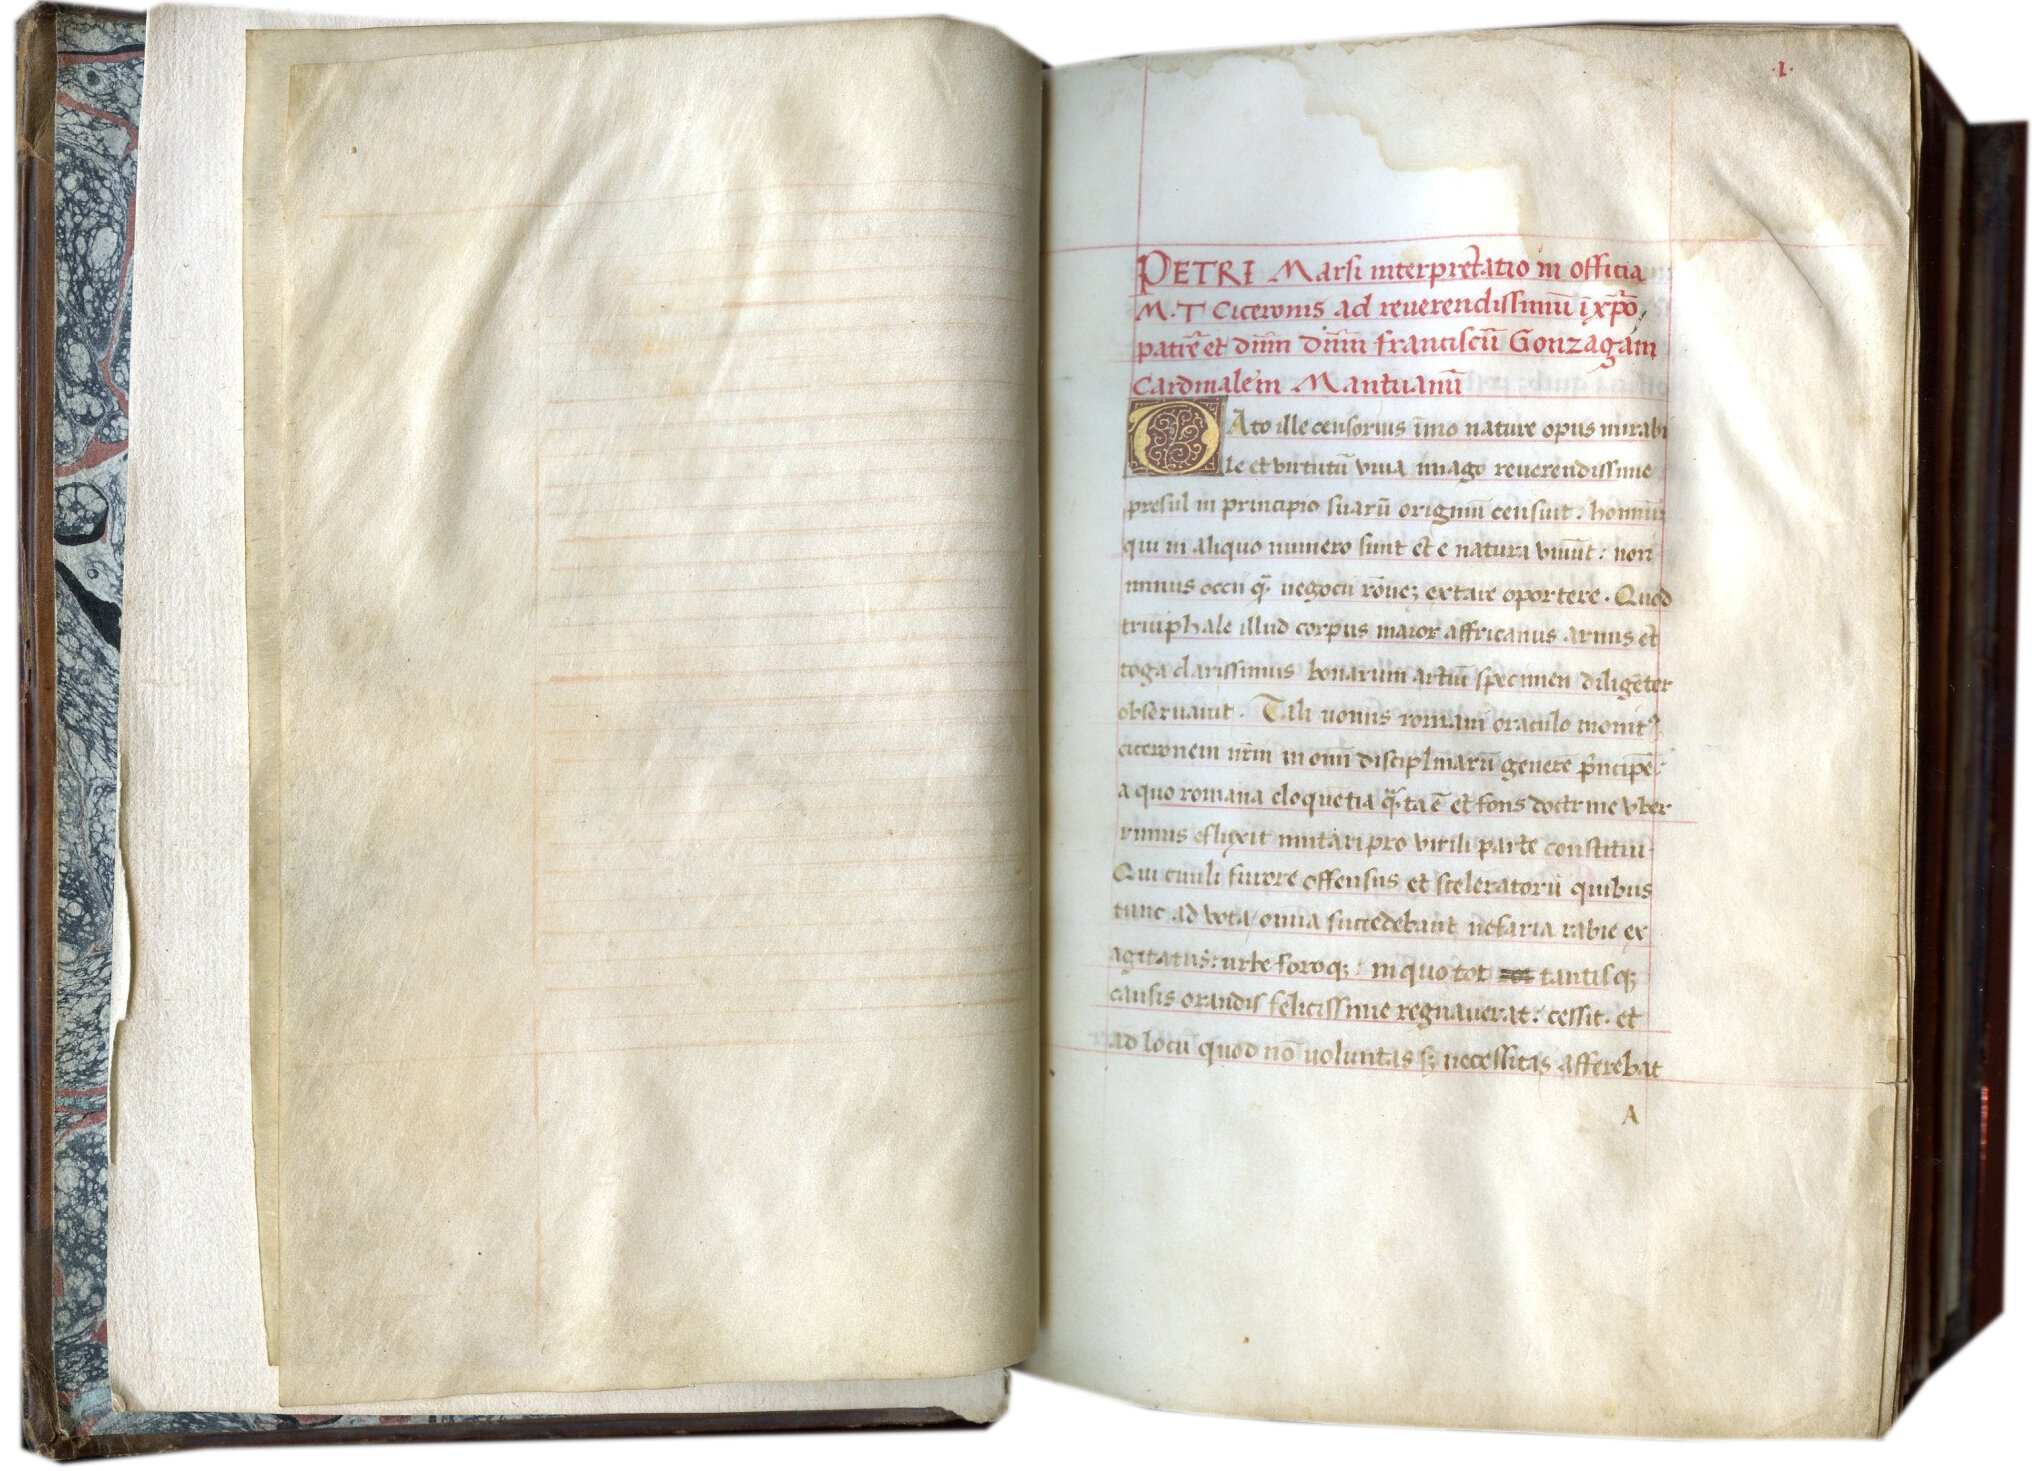 .1.
PETRI Marsi interpretatio in officia
M. T Ciceronis ad reuerendissimū ī xp̄o
patrē et dn̄m dn̄m franciscū Gonzagam
Cardinalem Mantuanū
CAto ille censorius īmo nature opus mirabi
le et virtutū viua imago reuerendissime
presul in principio suarū originū censuit. hominū
qui in aliquo numero sunt et e natura viuūt: non
minus occii q̄ negocii rōneȝ extare oportere. Quod
triūphale illud corpus maior affricanus armis et
toga clarissimus bonarum artiū specimen diligēter
obseruauit. Tali uomis romani oraculo monitꝰ
ciceronem nr̄m in omni disciplinarū genere pͥncipē
a quo romana eloquētia q̄ta ē et fons doctrine vber
rimus eflixit imitari pro virili parte constitui.
Qui ciuili furore offensus et sceleratorū quibus
tunc ad vota/omnia succedebant nefaria rabie ex
agitatus: urbe foroqꝫ: in quo tot tantisqꝫ
causis orandis felicissime regnauerat: cessit. et
ad locū quod nō uoluntas sꝫ necessitas afferebat
A